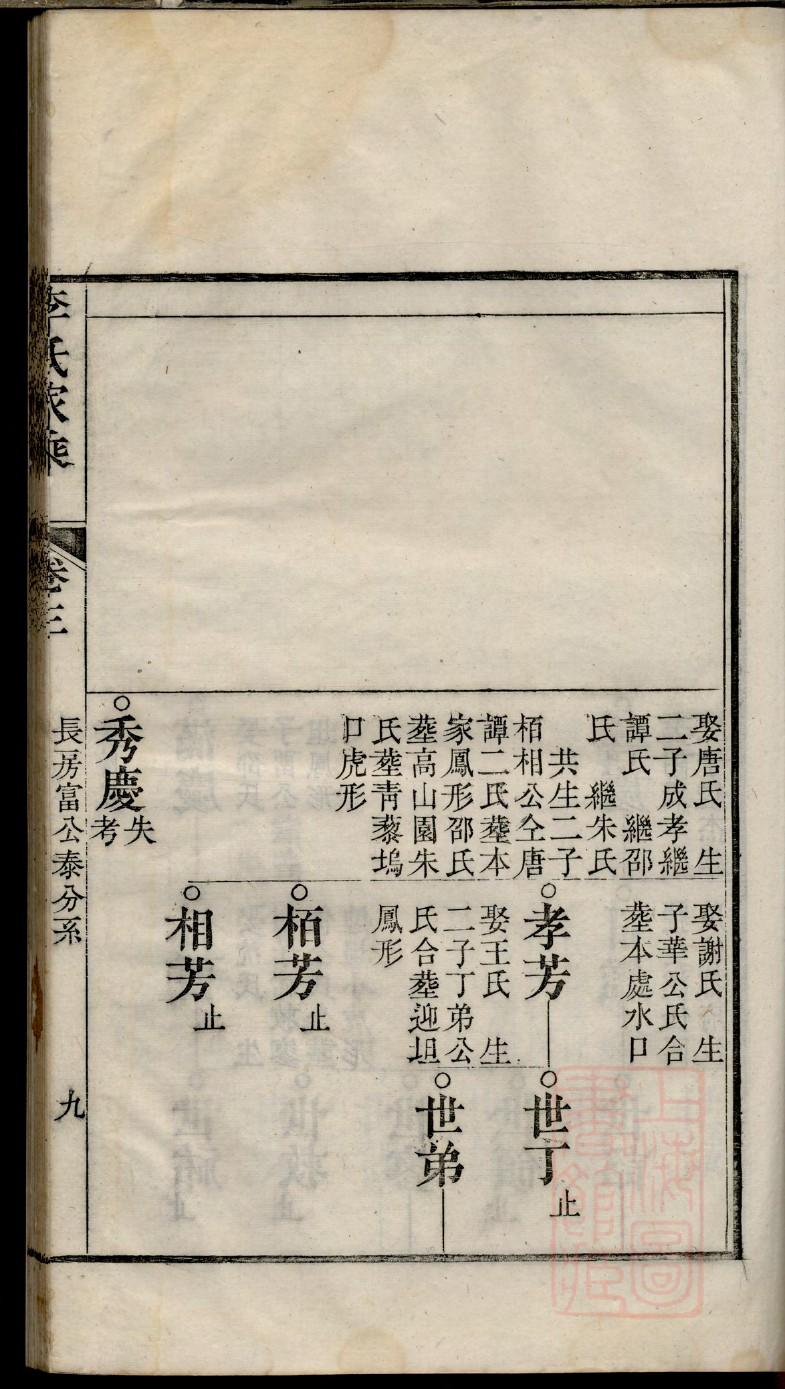 娶唐氏　生
二子成孝繼
譚氏　繼邵
氏　繼朱氏
共生二子
栢相公仝唐
譚二氏塟本
家鳳形邵氏
塟高山園朱
氏塟靑藜塢
口虎形
秀慶 失考
娶謝氏　生
子華公氏合
塟本處水口
孝芳
娶王氏　生
二子丁弟公
氏合塟迎坦
鳳形
栢芳 止
相芳 止
世丁 止
世弟
李氏家乘
卷三
長房富公泰分系
九
上海圖書館藏